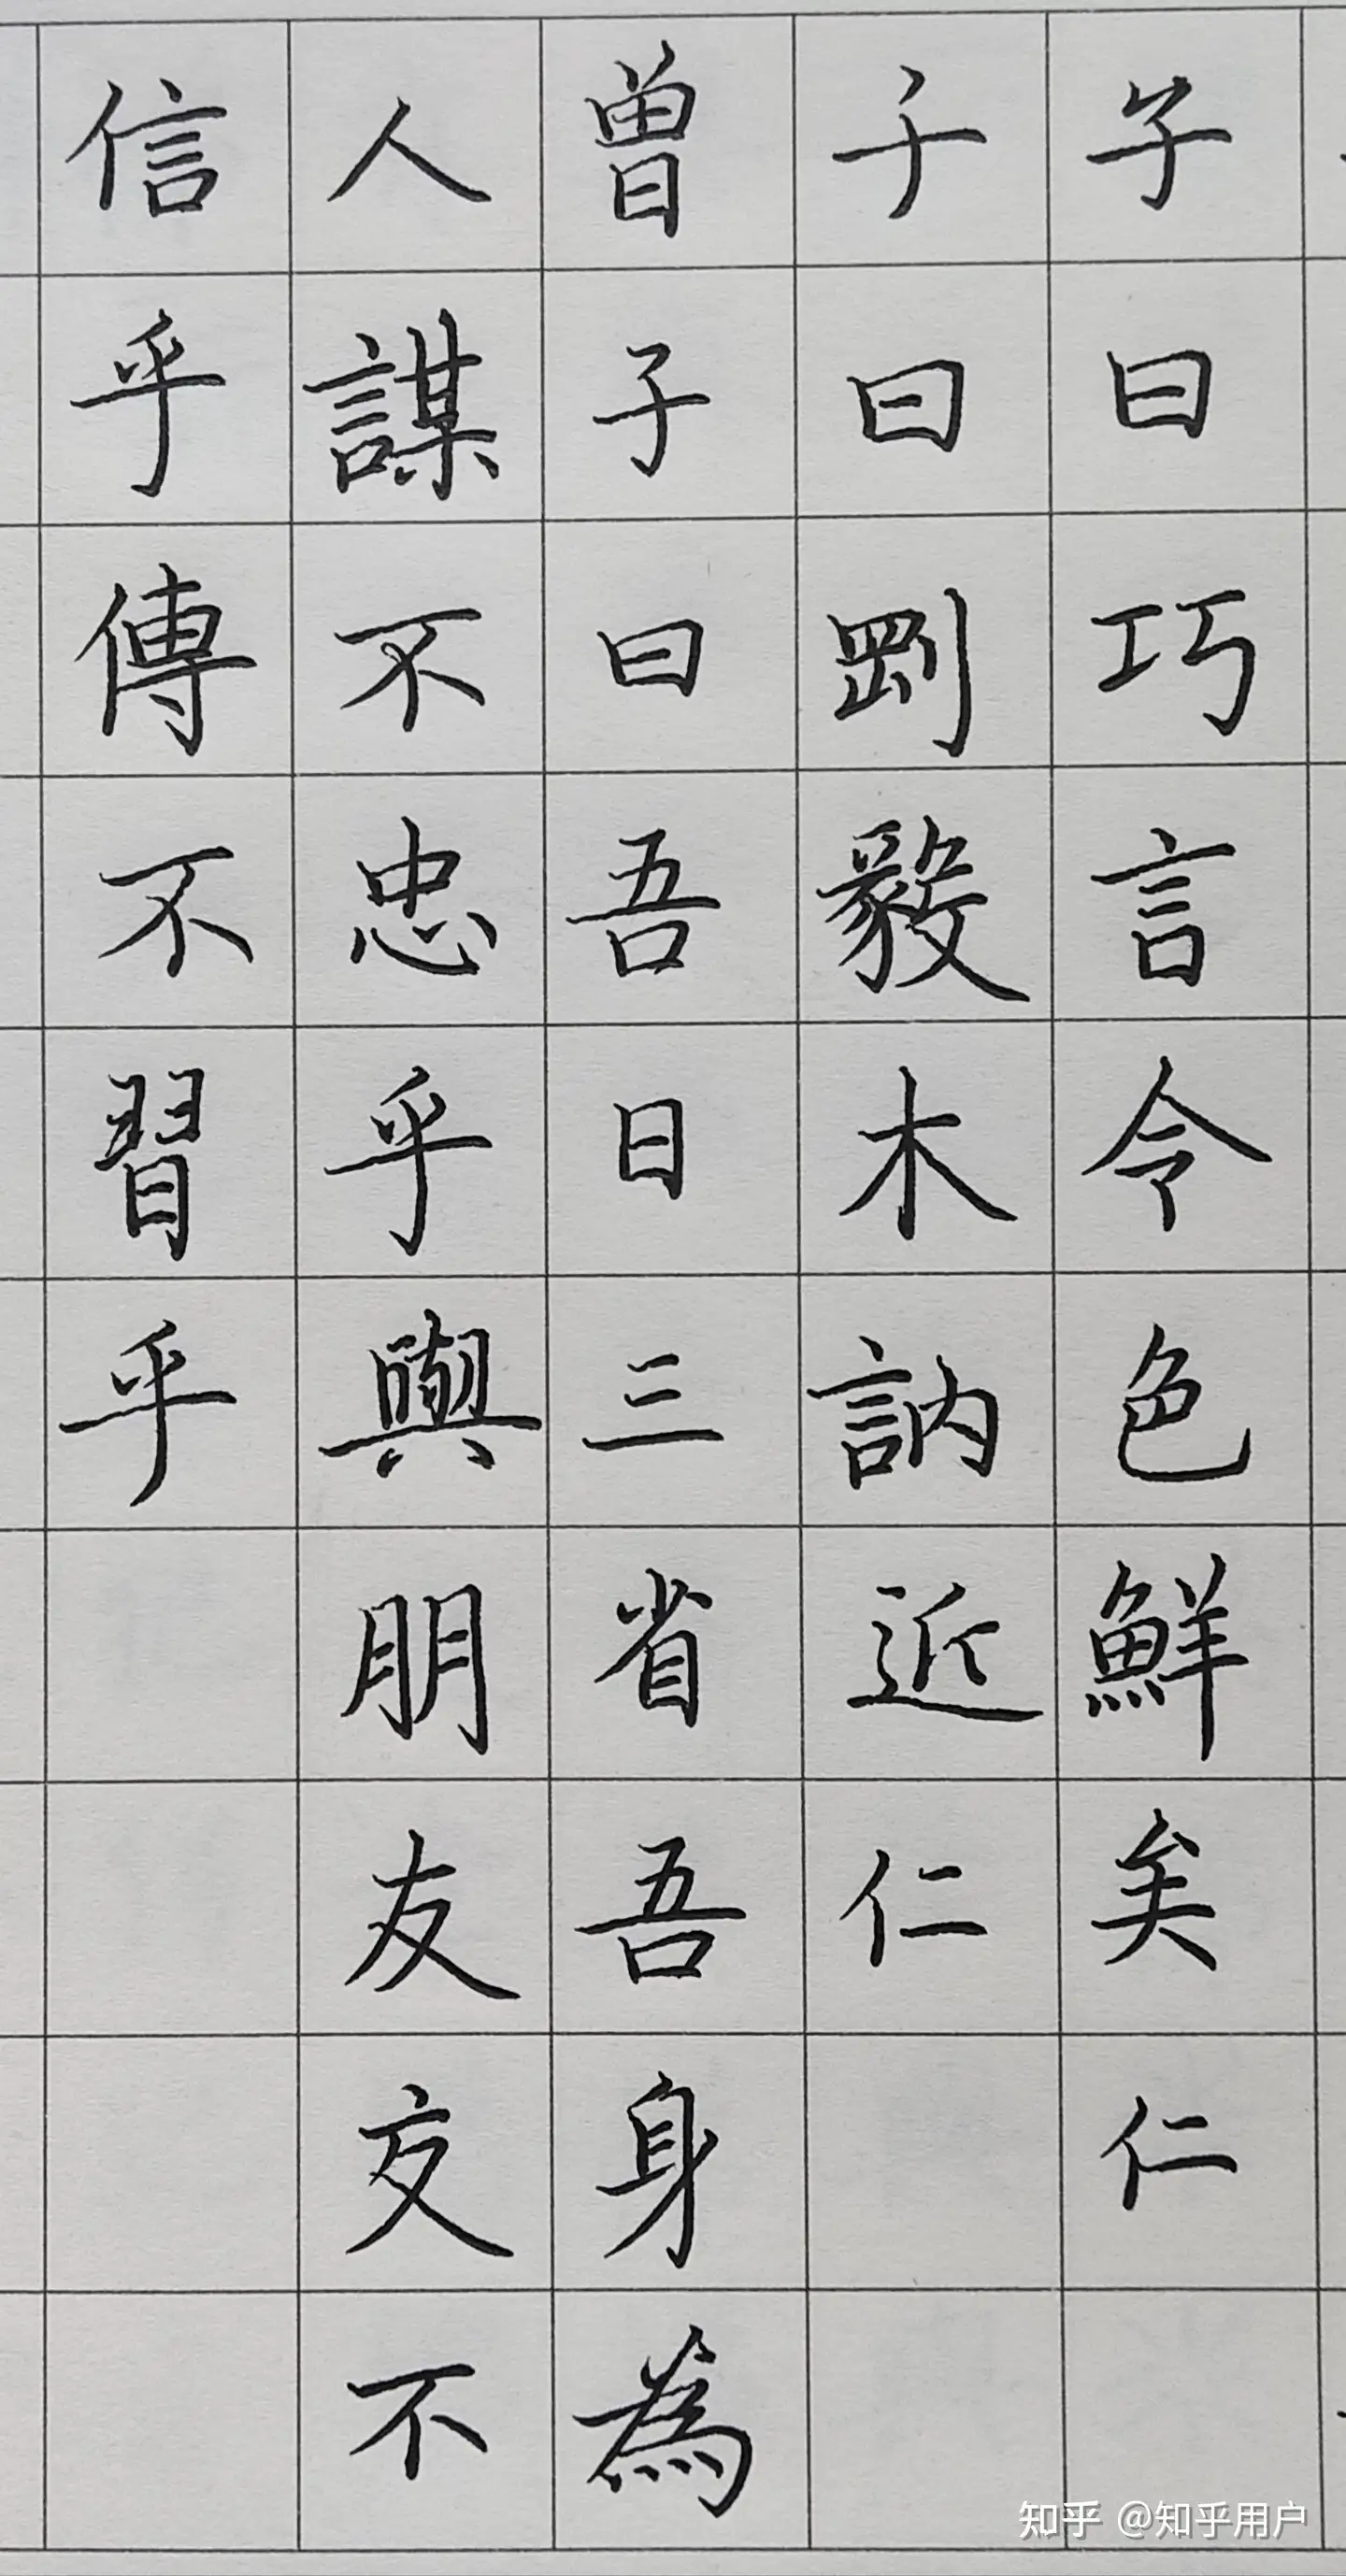 子曰巧言令色鮮矣仁
子曰剛毅木訥近仁
曾子曰吾日三省吾身為
人謀不忠乎與朋友交不
信乎傳不習乎
知乎 @知乎用户